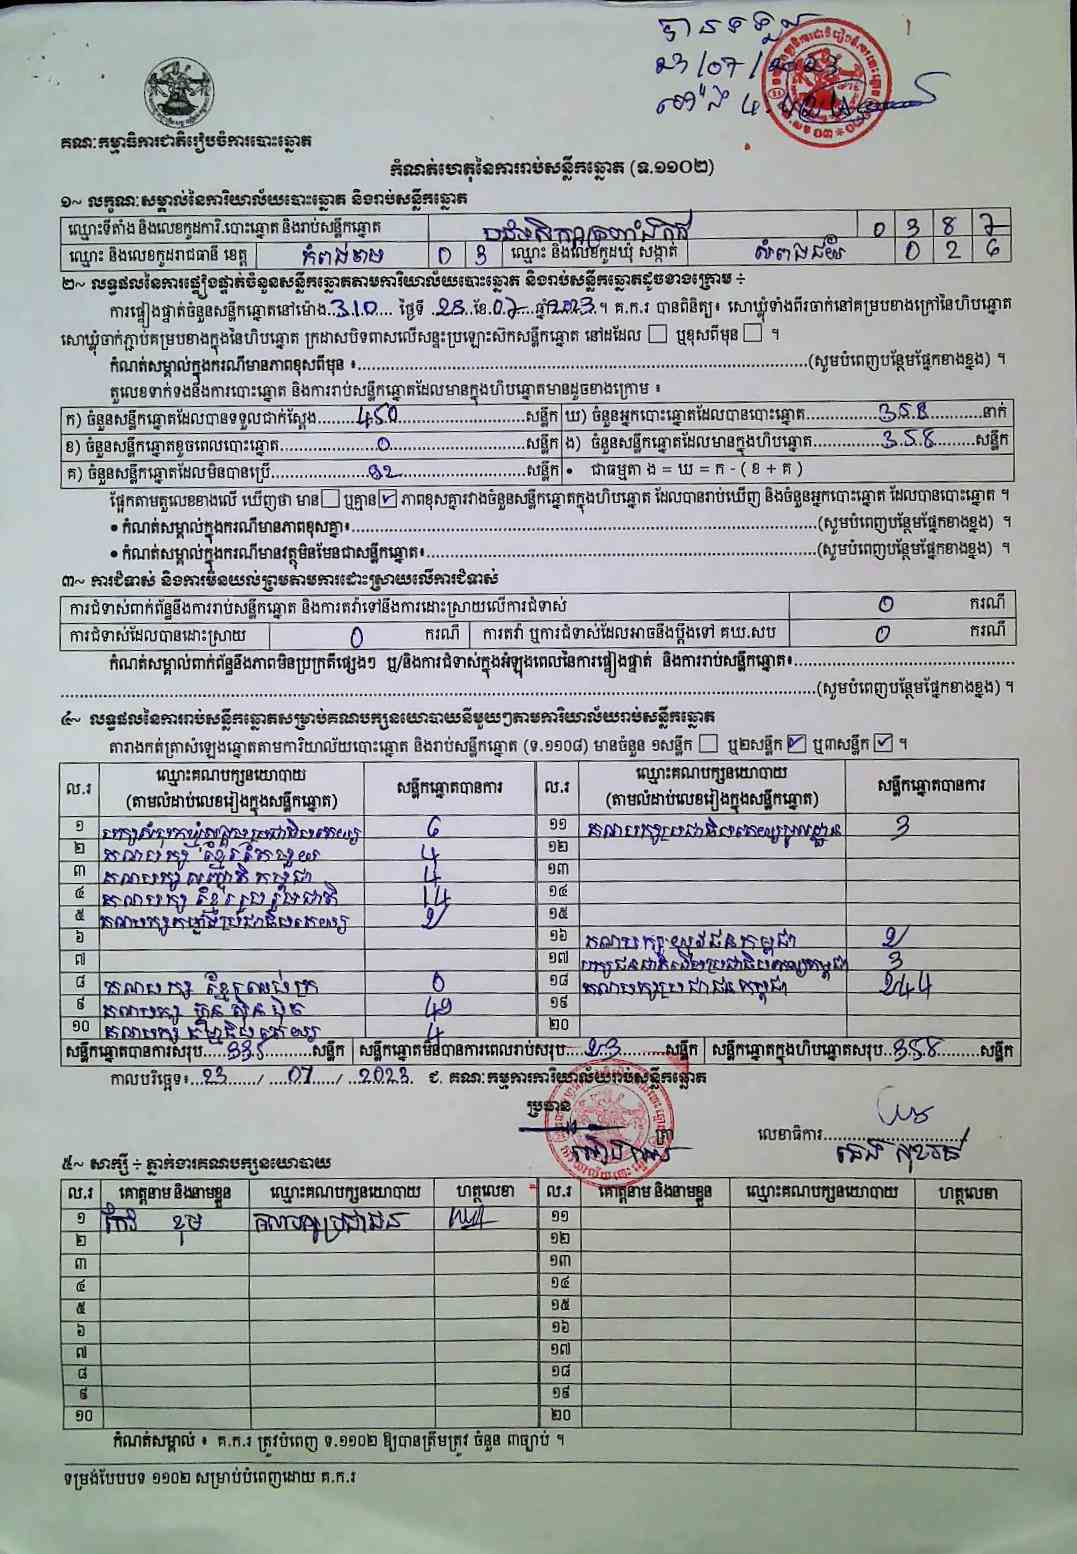 បានទទួល
23/07/2023
គណៈកម្មាធិការជាតិរៀបចំការបោះឆ្នោត
កំណត់ហេតុនៃការរាប់សន្លឹកឆ្នោត (ទ.១១០២)
១~ លក្ខណៈសម្គាល់នៃការិយាល័យបោះឆ្នោត និងរាប់សន្លឹកឆ្នោត
ឈ្មោះទីតាំង និងលេខកូដការិ.បោះឆ្នោត និងរាប់សន្លឹកឆ្នោត 0 3 8 7
ឈ្មោះ និងលេខកូដរាជធានី ខេត្ត កំពង់ចាម 0 3 ឈ្មោះ និងលេខកូដឃុំ សង្កាត់ 0 2 6
២~ លទ្ធផលនៃការផ្ទៀងផ្ទាត់ចំនួនសន្លឹកឆ្នោតតាមការិយាល័យបោះឆ្នោត និងរាប់សន្លឹកឆ្នោតដូចខាងក្រោម ÷
ការផ្ទៀងផ្ទាត់ចំនួនសន្លឹកឆ្នោតនៅម៉ោង 3:10 ថ្ងៃទី 23 ខែ 07 ឆ្នាំ 2023 ។ គ.ក.រ បានពិនិត្យ៖ សោឃ្លុំទាំងពីរចាក់នៅគម្របខាងក្រៅនៃហិបឆ្នោត
សោឃ្លុំចាក់ភ្ជាប់គម្របខាងក្នុងនៃហិបឆ្នោត ក្រដាសបិទពាសលើសន្ទះប្រឡោះស៊កសន្លឹកឆ្នោត នៅដដែល ☐ ឬខុសពីមុន ☐ ។
កំណត់សម្គាល់ក្នុងករណីមានភាពខុសពីមុន ៖ (សូមបំពេញបន្ថែមផ្នែកខាងខ្នង) ។
តួលេខទាក់ទងនឹងការបោះឆ្នោត និងការរាប់សន្លឹកឆ្នោតដែលមានក្នុងហិបឆ្នោតមានដូចខាងក្រោម ៖
ក) ចំនួនសន្លឹកឆ្នោតដែលបានទទួលជាក់ស្តែង 450 សន្លឹក ឃ) ចំនួនអ្នកបោះឆ្នោតដែលបានបោះឆ្នោត 358 នាក់
ខ) ចំនួនសន្លឹកឆ្នោតខូចពេលបោះឆ្នោត 0 សន្លឹក ង) ចំនួនសន្លឹកឆ្នោតដែលមានក្នុងហិបឆ្នោត 358 សន្លឹក
គ) ចំនួនសន្លឹកឆ្នោតដែលមិនបានប្រើ 92 សន្លឹក • ជាធម្មតា ង = ឃ = ក - ( ខ + គ )
ផ្អែកតាមតួលេខខាងលើ ឃើញថា មាន ☐ ឬគ្មាន ☑ ភាពខុសគ្នារវាងចំនួនសន្លឹកឆ្នោតក្នុងហិបឆ្នោត ដែលបានរាប់ឃើញ និងចំនួនអ្នកបោះឆ្នោត ដែលបានបោះឆ្នោត ។
• កំណត់សម្គាល់ក្នុងករណីមានភាពខុសគ្នា៖ (សូមបំពេញបន្ថែមផ្នែកខាងខ្នង) ។
• កំណត់សម្គាល់ក្នុងករណីមានវត្ថុមិនមែនជាសន្លឹកឆ្នោត៖ (សូមបំពេញបន្ថែមផ្នែកខាងខ្នង) ។
៣~ ការជំទាស់ និងការមិនយល់ព្រមតាមការដោះស្រាយលើការជំទាស់
ការជំទាស់ពាក់ព័ន្ធនឹងការរាប់សន្លឹកឆ្នោត និងការតវ៉ាទៅនឹងការដោះស្រាយលើការជំទាស់ 0 ករណី
ការជំទាស់ដែលបានដោះស្រាយ 0 ករណី ការតវ៉ា ឬការជំទាស់ដែលអាចនឹងប្តឹងទៅ គឃ.សប 0 ករណី
កំណត់សម្គាល់ពាក់ព័ន្ធនឹងភាពមិនប្រក្រតីផ្សេងៗ ឬ/និងការជំទាស់ក្នុងអំឡុងពេលនៃការផ្ទៀងផ្ទាត់ និងការរាប់សន្លឹកឆ្នោត៖
(សូមបំពេញបន្ថែមផ្នែកខាងខ្នង) ។
៤~ លទ្ធផលនៃការរាប់សន្លឹកឆ្នោតសម្រាប់គណបក្សនយោបាយនីមួយៗតាមការិយាល័យរាប់សន្លឹកឆ្នោត
តារាងកត់ត្រាសំឡេងឆ្នោតតាមការិយាល័យបោះឆ្នោត និងរាប់សន្លឹកឆ្នោត (ទ.១១០៨) មានចំនួន ១សន្លឹក ☐ ឬ២សន្លឹក ☑ ឬ៣សន្លឹក ☑ ។
ល.រ ឈ្មោះគណបក្សនយោបាយ (តាមលំដាប់លេខរៀងក្នុងសន្លឹកឆ្នោត) សន្លឹកឆ្នោតបានការ ល.រ ឈ្មោះគណបក្សនយោបាយ (តាមលំដាប់លេខរៀងក្នុងសន្លឹកឆ្នោត) សន្លឹកឆ្នោតបានការ
១ បក្សសំបុកឃ្មុំសង្គមប្រជាធិបតេយ្យ 6 ១១ 3
២ គណបក្ស ខ្មែរតែមួយ 4 ១២
៣ គណបក្ស សញ្ជាតិកម្ពុជា 4 ១៣
៤ គណបក្ស ខ្មែររួបរួមជាតិ 14 ១៤
៥ គណបក្សកម្លាំងប្រជាធិបតេយ្យ 2 ១៥
៦ ១៦ គណបក្សយុវជនកម្ពុជា 2
៧ ១៧ បក្សជនជាតិដើមប្រជាធិបតេយ្យកម្ពុជា 3
៨ គណបក្ស ខ្មែរឈប់ក្រ 0 ១៨ គណបក្សប្រជាជនកម្ពុជា 244
៩ គណបក្ស ហ្វ៊ុនស៊ិនប៉ិច 49 ១៩
១០ គណបក្ស ធម្មាធិបតេយ្យ 4 ២០
សន្លឹកឆ្នោតបានការសរុប 335 សន្លឹក សន្លឹកឆ្នោតមិនបានការពេលរាប់សរុប 23 សន្លឹក សន្លឹកឆ្នោតក្នុងហិបឆ្នោតសរុប 358 សន្លឹក
កាលបរិច្ឆេទ៖ 23 / 07 / 2023 ជ. គណៈកម្មការការិយាល័យរាប់សន្លឹកឆ្នោត
ប្រធាន
លេខាធិការ
៥~ សាក្សី ÷ ភ្នាក់ងារគណបក្សនយោបាយ
ល.រ គោត្តនាម និងនាមខ្លួន ឈ្មោះគណបក្សនយោបាយ ហត្ថលេខា ល.រ គោត្តនាម និងនាមខ្លួន ឈ្មោះគណបក្សនយោបាយ ហត្ថលេខា
១ កែវ ខុម គណបក្សប្រជាជន ១១
២ ១២
៣ ១៣
៤ ១៤
៥ ១៥
៦ ១៦
៧ ១៧
៨ ១៨
៩ ១៩
១០ ២០
កំណត់សម្គាល់ ៖ គ.ក.រ ត្រូវបំពេញ ទ.១១០២ ឱ្យបានត្រឹមត្រូវ ចំនួន ៣ច្បាប់ ។
ទម្រង់បែបបទ ១១០២ សម្រាប់បំពេញដោយ គ.ក.រ